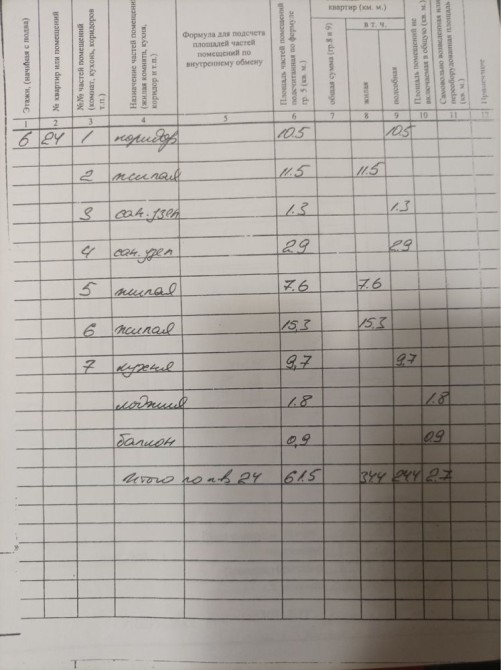 квартир (кв. м.)
в т. ч.
Этажи, (начиная с подва)
№ квартир или помещений
№№ частей помещений (комнат, кухонь, коридоров т.п.)
Назначение частей помещен (жилая комната, кухня, коридор и т.п.)
Формула для подсчета площадей частей помещений по внутреннему обмену
Площадь частей помещений подсчитанная по формуле гр. 5 (кв. м.)
общая сумма (гр.8 и 9)
жилая
подсобная
Площадь помещений не включаемая в общую (кв. м.)
Самовольно возведенная или переоборудования площадь (кв. м.)
1 2 3 4 5 6 7 8 9 10 11 12
6 24 1 коридор 10.5 10.5
2 жилая 11.5 11.5
3 сан.узел 1.3 1.3
4 сан.узел 2.9 2.9
5 жилая 7.6 7.6
6 жилая 15,3 15.3
7 кухня 9,7 9.7
лоджия 1.8 1.8
балкон 0,9 0.9
Итого по кв 24 61.5 34.4 24.4 2.7